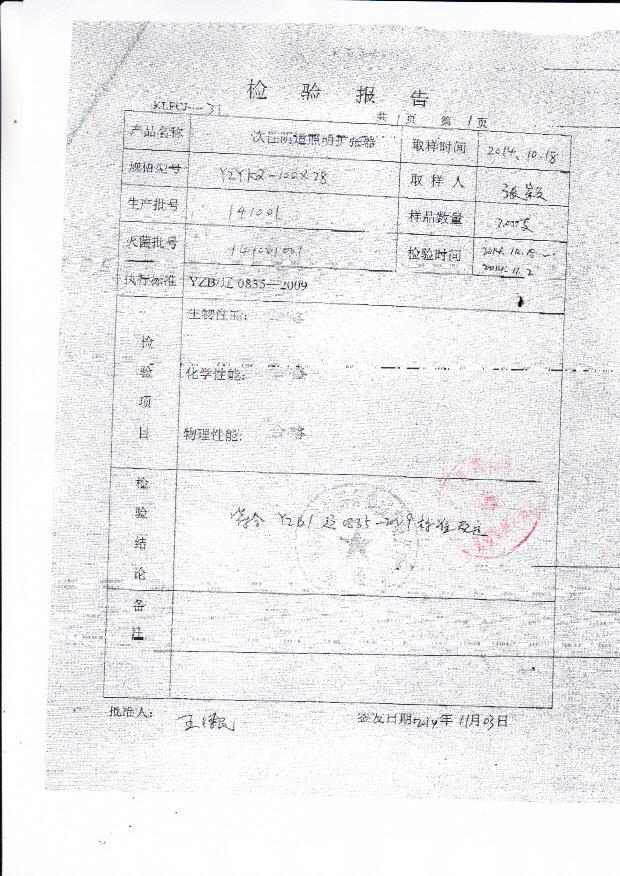 检 验 报 告
KLPCJ—31
共 1 页 第 1 页
产品名称 次性阴道照明扩张器 取样时间 2014.10.18
规格型号 YZYKQ-100×28 取样人 张颖
生产批号 141001 样品数量
灭菌批号 141001001 检验时间 2014.10.18—
2014.11.2
执行标准 YZB/辽 0835—2009
检验项目
生物性能: 合格
化学性能: 合格
物理性能: 合格
检验结论
符合 YZB/辽 0835-2009 标准规定
备注
批准人: 签发日期 2014年 11月 03日